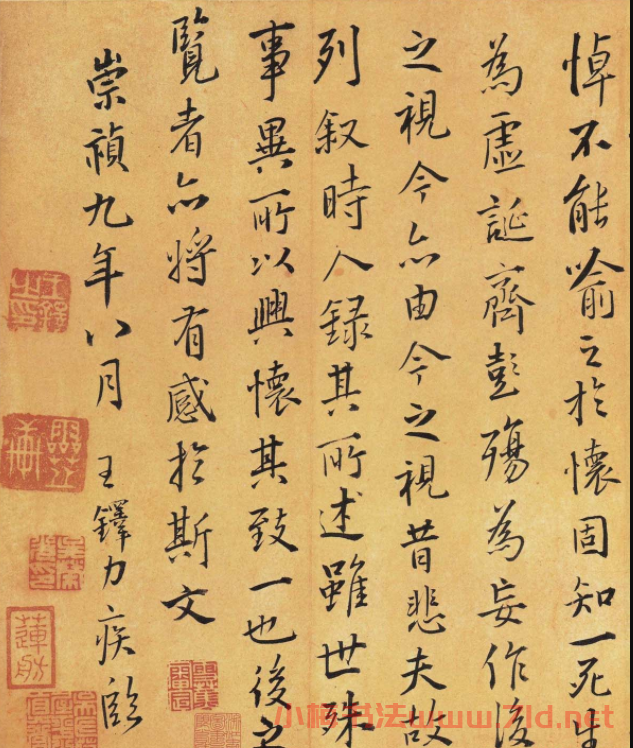 悼不能喻之於懷固知一死生
為虛誕齊彭殤為妄作後
之視今亦由今之視昔悲夫故
列叙時人録其所述雖世殊
事異所以興懷其致一也後之
覽者亦將有感於斯文
崇禎九年八月 王鐸力疾臨
蓮舫
小楷书法www.7ld.net